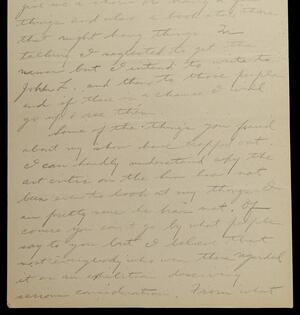 give me a show or hang a few
things and also a bookstore, there
that might hang things. In
talking I neglected to get the
names but I intend to write to
John L. and them to those people
and if there is a chance I will
go up & see them.
Some of the things you feared
about my show have cropped out.
I can hardly understand why the
art critic on the Sun has not
been even to look at my things. I
am pretty sure he has not. Of
course you can't go by what people
say to you but I believe that
most everybody who was there regarded
it as an exhibition deserving
serious consideration. From what